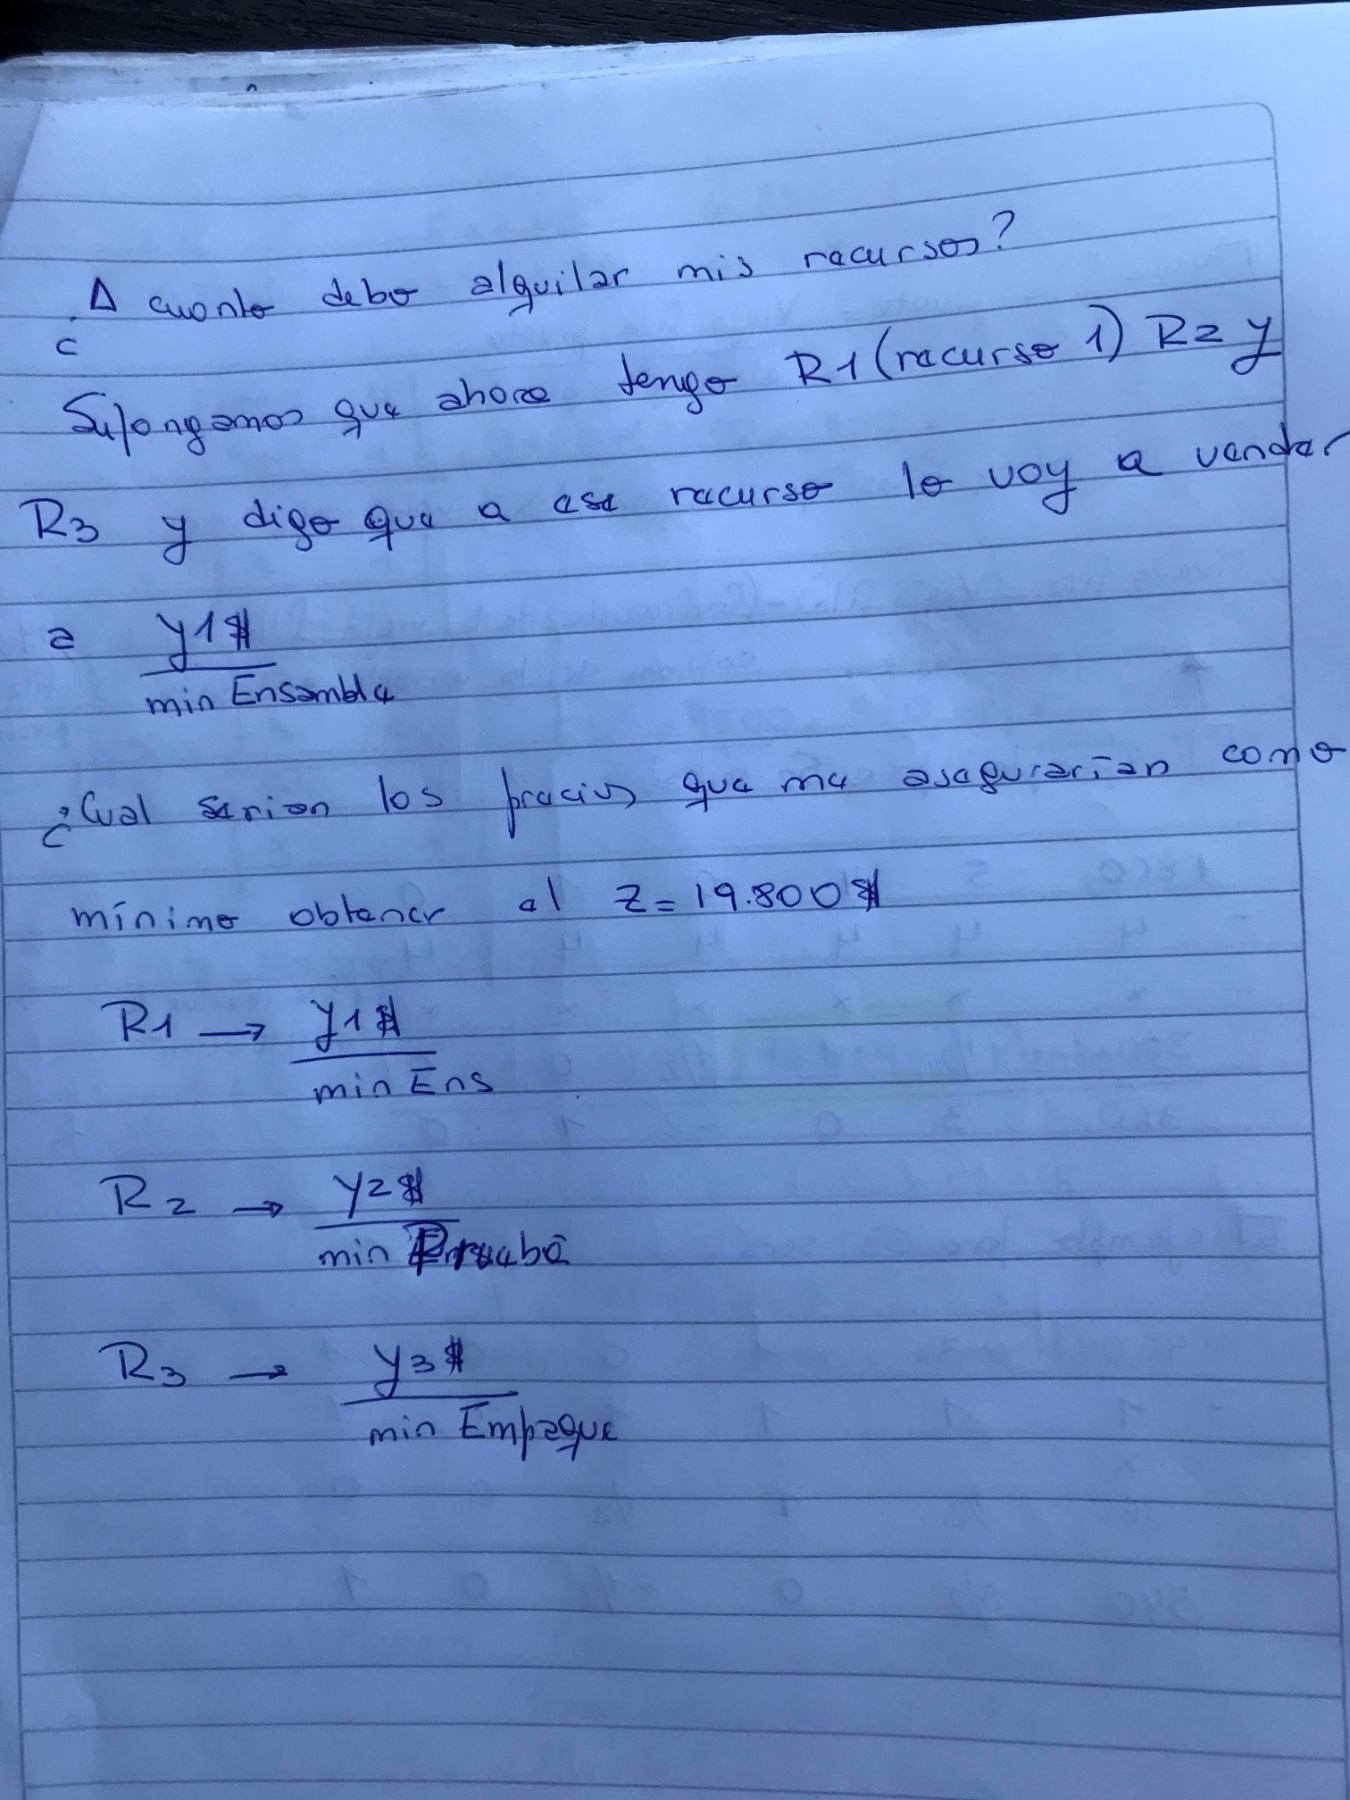 ¿A cuanto debo alquilar mis recursos?
Supongamos que ahora tengo R1 (recurso 1) R2 y
R3 y digo que a ese recurso lo voy a vender
a y1$
min Ensamble
¿Cual serian los precios que me asegurarían como
mínimo obtener el Z = 19.800$
R1 → y1$
min Ens
R2 → y2$
min Prueba
R3 → y3$
min Empaque